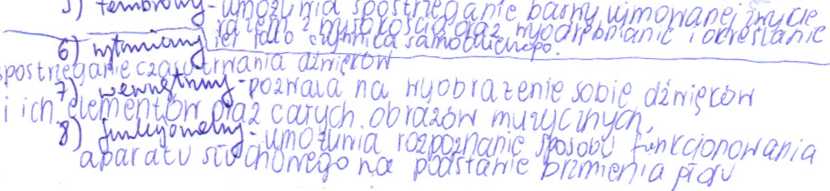 5) tembrowy - umożliwia spostrzeganie barwy ujmowanej zwykle
razem z wysokością oraz wyodrębnianie i określanie
jej jako czynnika samodzielnego.
6) rytmiczny
spostrzeganie czasu trwania dźwięków
7) wewnętrzny - pozwala na wyobrażenie sobie dźwięków
i ich elementów oraz całych obrazów muzycznych,
8) funkcjonalny - umożliwia rozpoznanie sposobu funkcjonowania
aparatu słuchowego na podstawie brzmienia